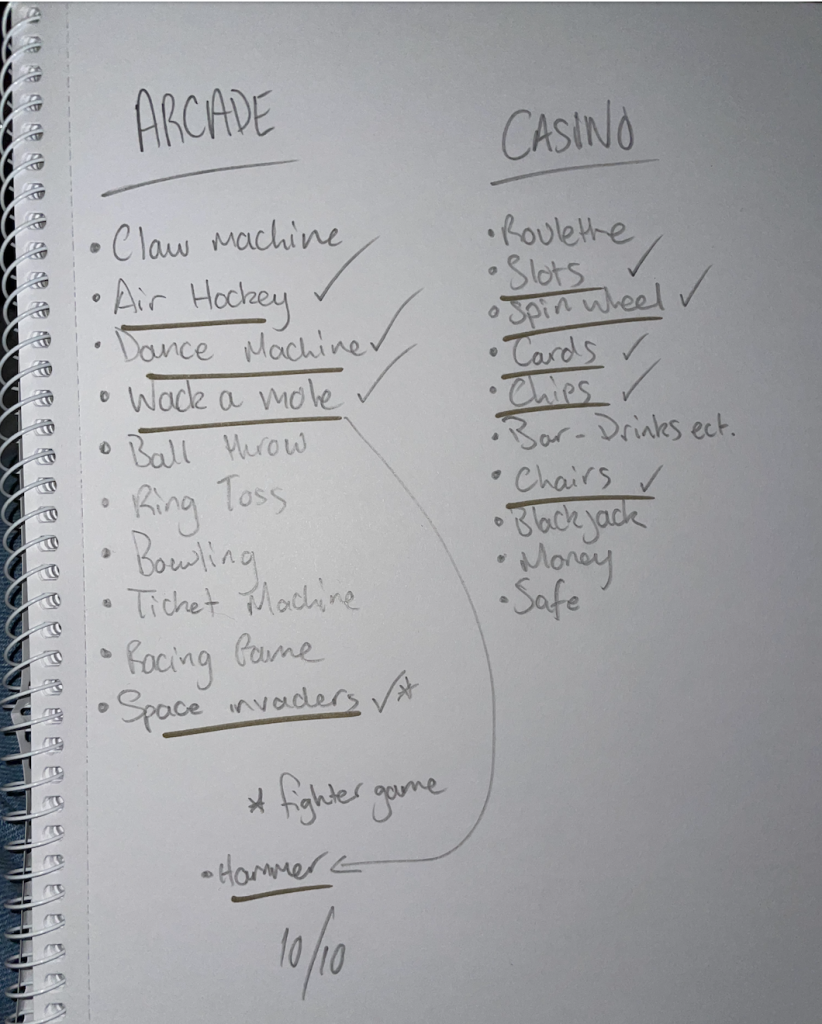 ARCADE
• Claw machine
• Air Hockey ✓
• Dance Machine ✓
• Wack a mole ✓
• Ball throw
• Ring Toss
• Bowling
• Ticket Machine
• Racing Game
• Space invaders ✓*
* fighter game
• Hammer
10/10
CASINO
• Roulette
• Slots ✓
• Spin wheel ✓
• Cards ✓
• Chips ✓
• Bar - Drinks ect.
• Chairs ✓
• Blackjack
• Money
• Safe